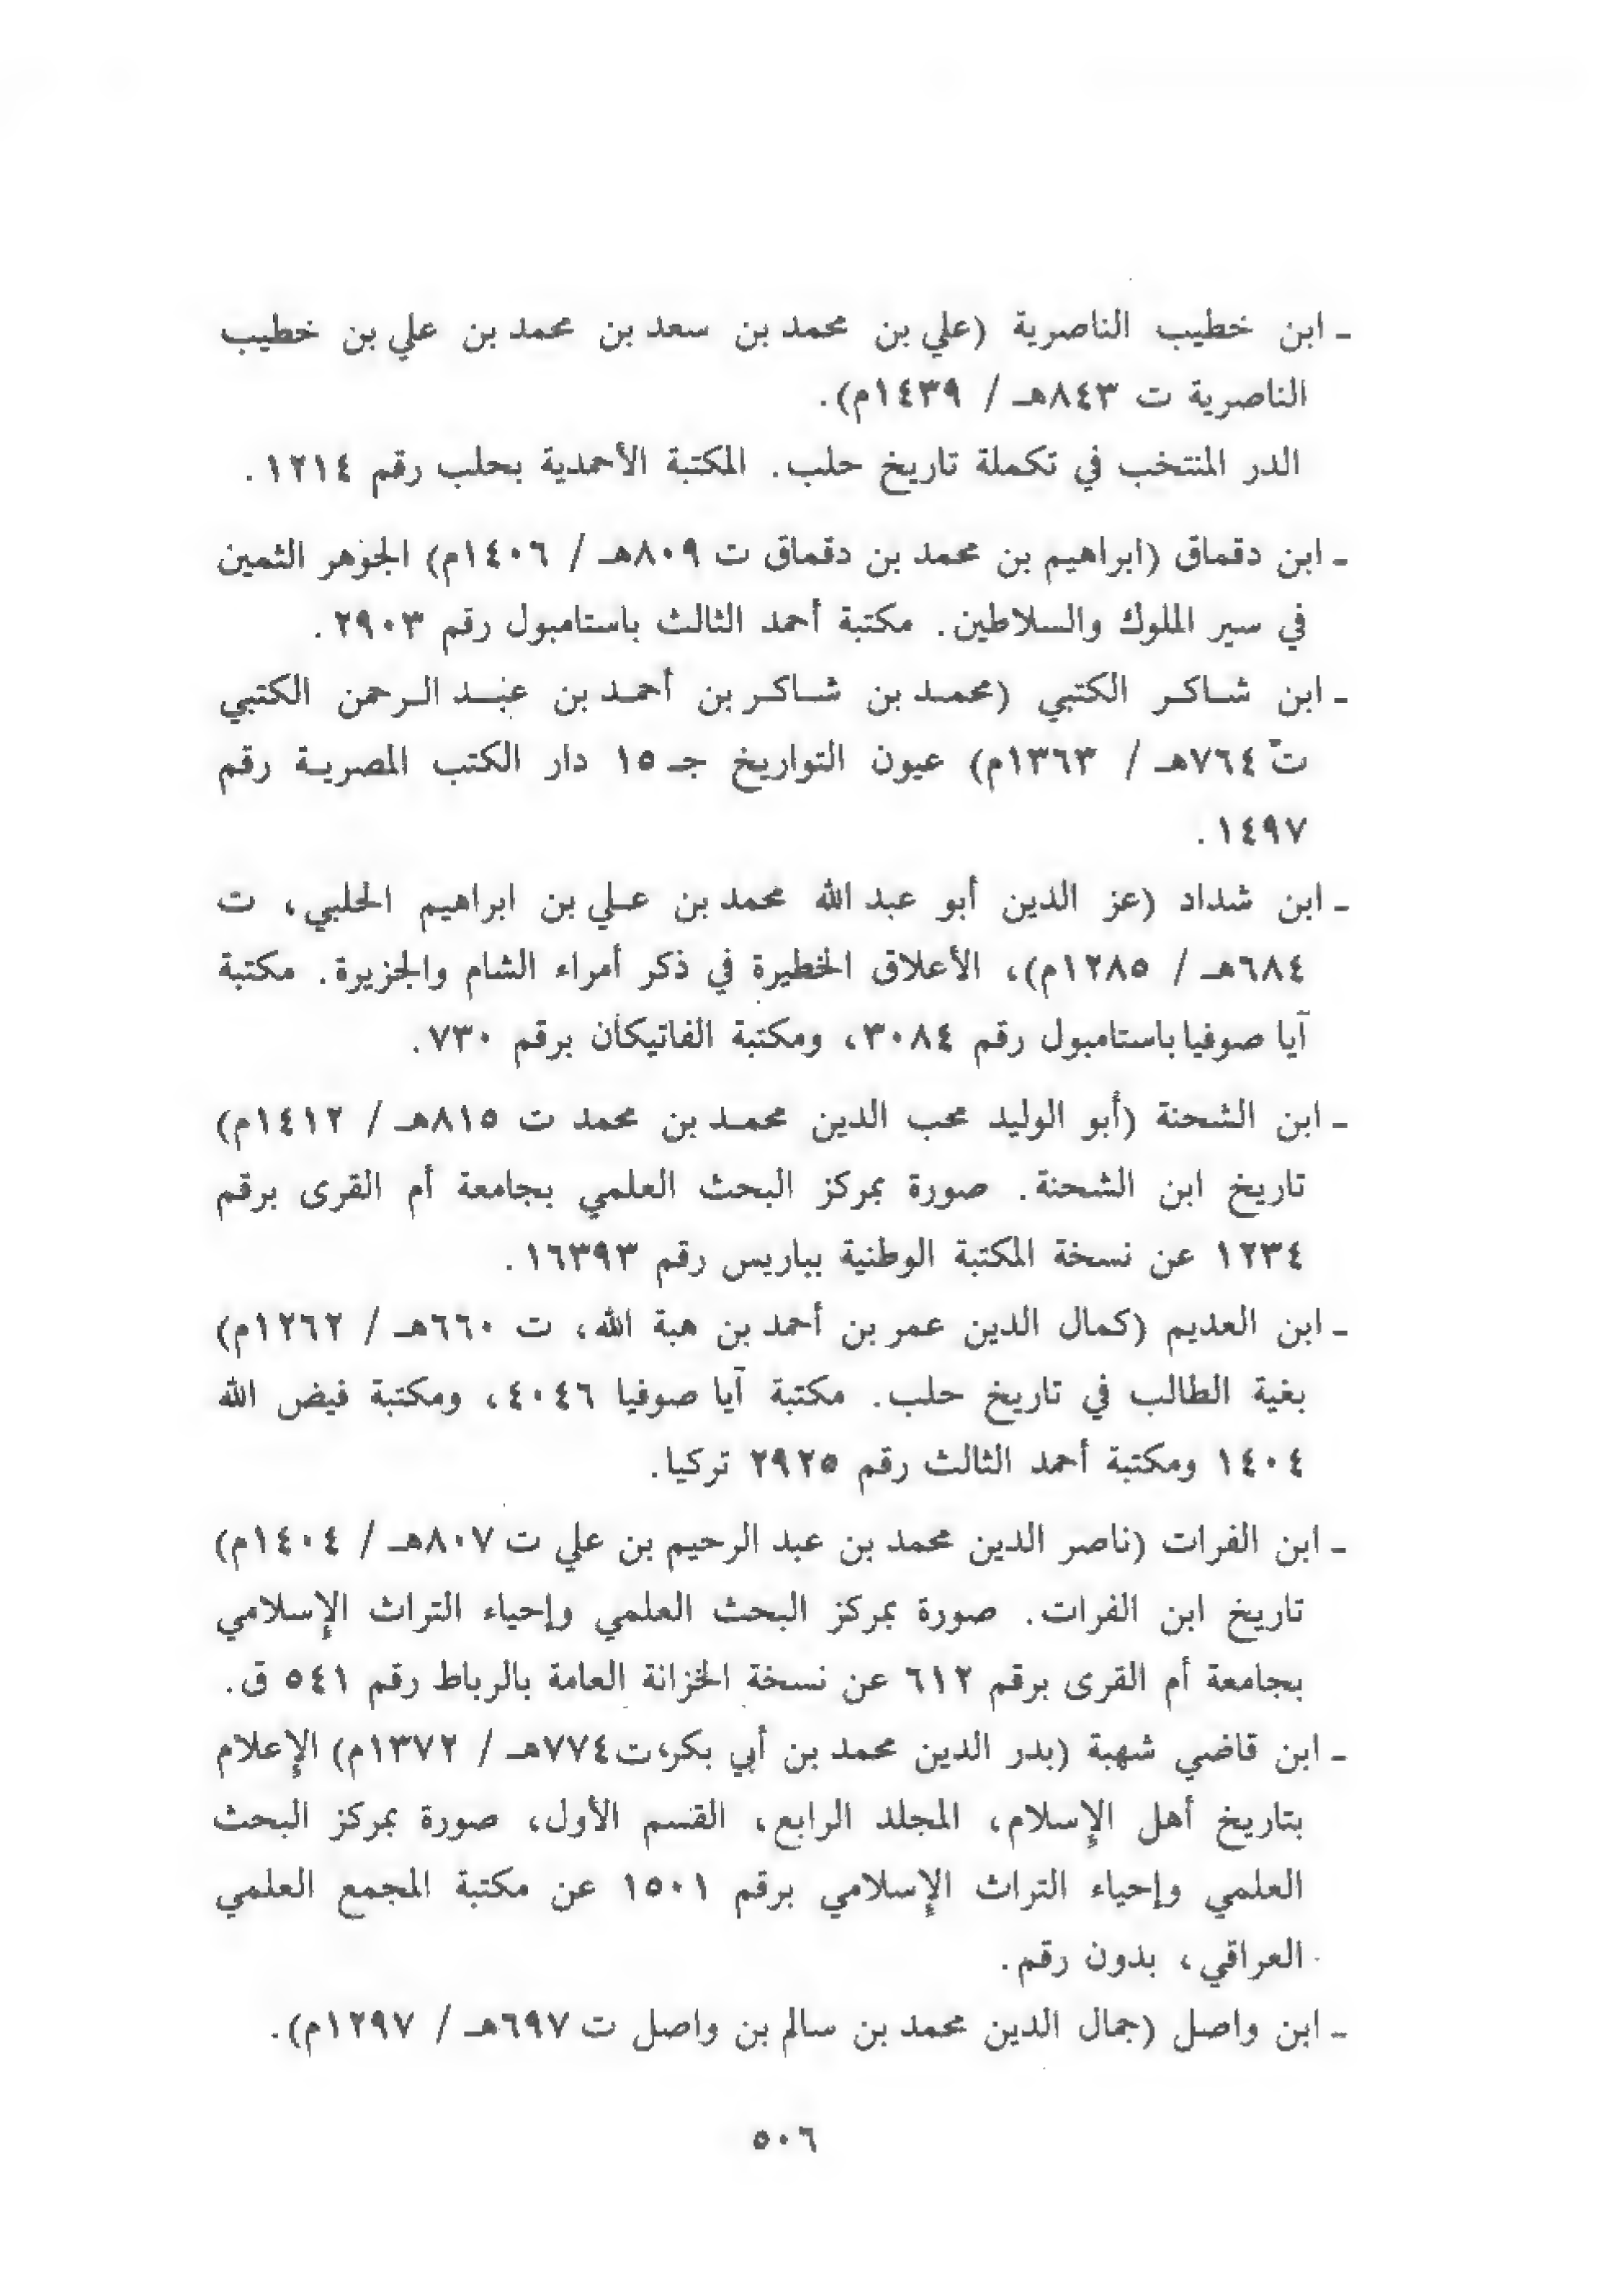 ـ ابن خطيب الناصرية (علي بن محمد بن سعد بن محمد بن علي بن خطيب
الناصرية ت ٨٤٣هـ / ١٤٣٩م).
الدر المنتخب في تكملة تاريخ حلب. المكتبة الأحمدية بحلب رقم ١٢١٤.
ـ ابن دقماق (ابراهيم بن محمد بن دقماق ت ٨٠٩هـ / ١٤٠٦م) الجوهر الثمين
في سير الملوك والسلاطين. مكتبة أحمد الثالث باستامبول رقم ٢٩٠٣.
ـ ابن شاكر الكتبي (محمد بن شاكر بن أحمد بن عبد الرحمن الكتبي
ت ٧٦٤هـ / ١٣٦٣م) عيون التواريخ جـ ١٥ دار الكتب المصرية رقم
١٤٩٧.
ـ ابن شداد (عز الدين أبو عبد الله محمد بن علي بن ابراهيم الحلبي، ت
٦٨٤هـ / ١٢٨٥م)، الأعلاق الخطيرة في ذكر أمراء الشام والجزيرة. مكتبة
آيا صوفيا باستامبول رقم ٣٠٨٤، ومكتبة الفاتيكان برقم ٧٣٠.
ـ ابن الشحنة (أبو الوليد محب الدين محمد بن محمد ت ٨١٥هـ / ١٤١٢م)
تاريخ ابن الشحنة. صورة بمركز البحث العلمي بجامعة أم القرى برقم
١٢٣٤ عن نسخة المكتبة الوطنية بباريس رقم ١٦٣٩٣.
ـ ابن العديم (كمال الدين عمر بن أحمد بن هبة الله، ت ٦٦٠هـ / ١٢٦٢م)
بغية الطالب في تاريخ حلب. مكتبة آيا صوفيا ٤٠٤٦، ومكتبة فيض الله
١٤٠٤ ومكتبة أحمد الثالث رقم ٢٩٢٥ تركيا.
ـ ابن الفرات (ناصر الدين محمد بن عبد الرحيم بن علي ت ٨٠٧هـ / ١٤٠٤م)
تاريخ ابن الفرات. صورة بمركز البحث العلمي وإحياء التراث الإسلامي
بجامعة أم القرى برقم ٦١٢ عن نسخة الخزانة العامة بالرباط رقم ٥٤١ ق.
ـ ابن قاضي شهبة (بدر الدين محمد بن أبي بكر، ت ٧٧٤هـ / ١٣٧٢م) الإعلام
بتاريخ أهل الإسلام، المجلد الرابع، القسم الأول، صورة بمركز البحث
العلمي وإحياء التراث الإسلامي برقم ١٥٠١ عن مكتبة المجمع العلمي
العراقي، بدون رقم.
ـ ابن واصل (جمال الدين محمد بن سالم بن واصل ت ٦٩٧هـ / ١٢٩٧م).
٥٠٦